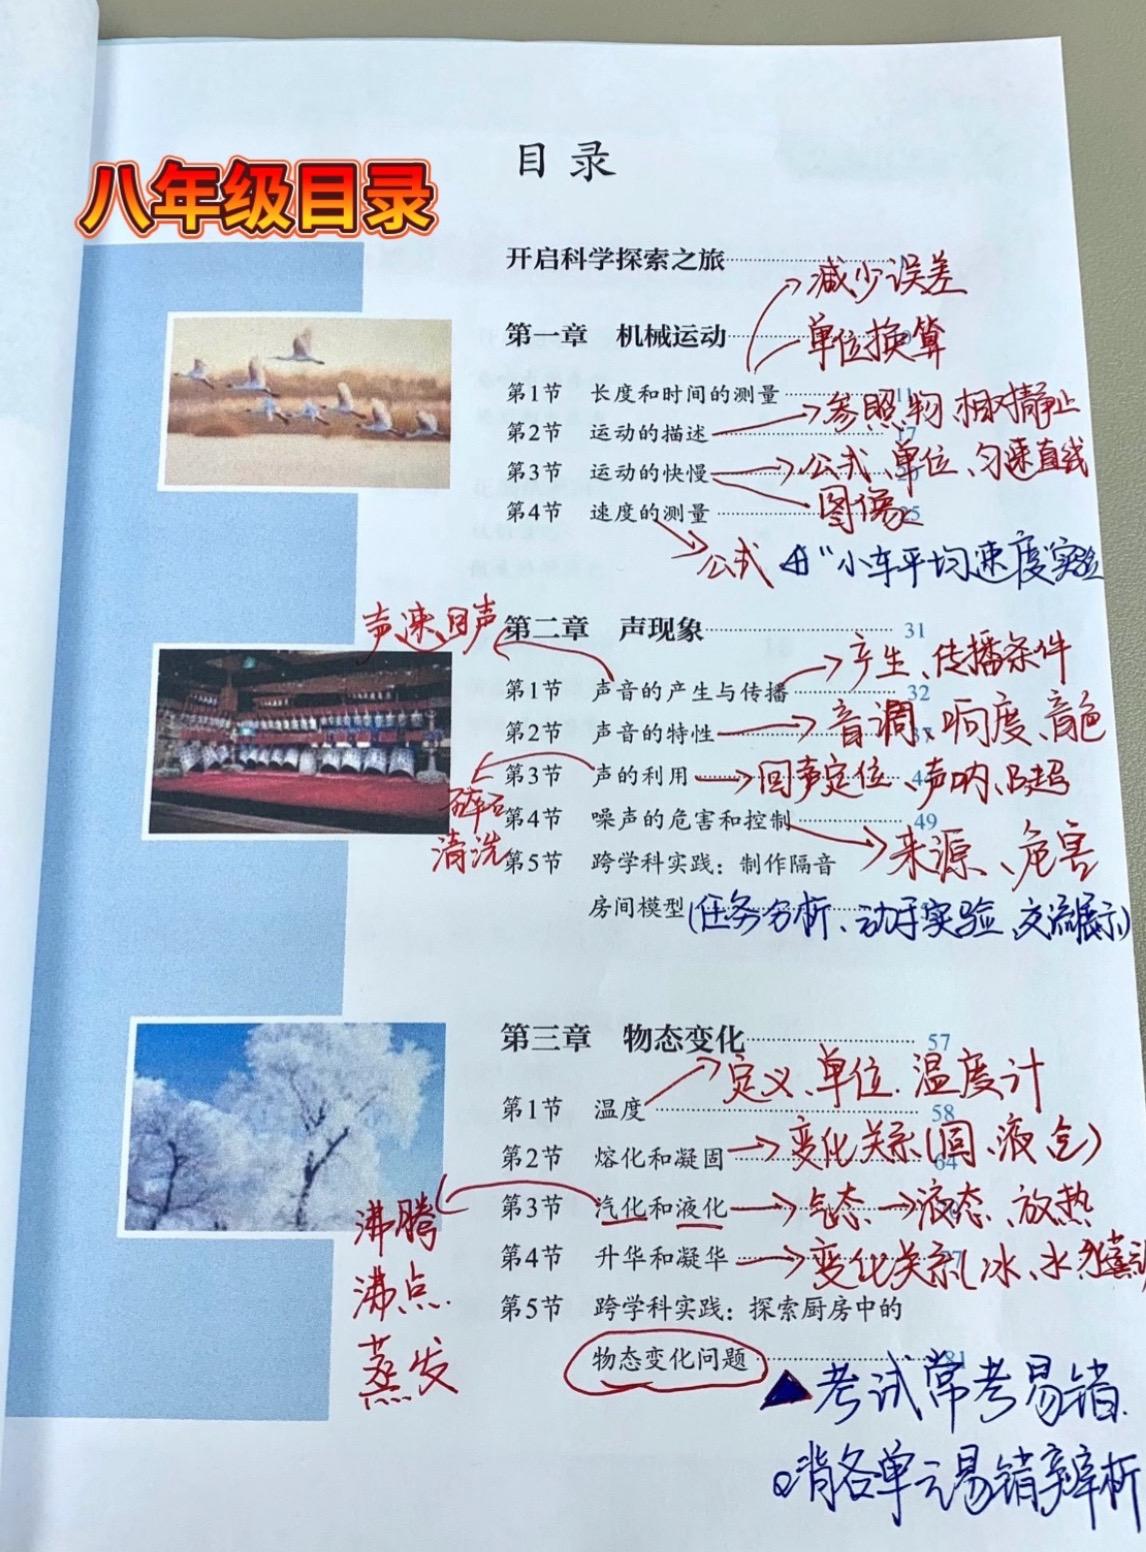 目录
八年级目录
开启科学探索之旅
减少误差
第一章 机械运动
单位换算
第1节 长度和时间的测量 11
第2节 运动的描述 17
参照物 相对静止
第3节 运动的快慢 20
公式、单位、匀速直线
图像
第4节 速度的测量 25
公式 "小车平均速度"实验
声速、回声
第二章 声现象 31
第1节 声音的产生与传播 32
产生、传播条件
第2节 声音的特性 37
音调、响度、音色
第3节 声的利用
回声定位、声呐、B超
碎石
清洗
第4节 噪声的危害和控制 49
来源、危害
第5节 跨学科实践：制作隔音
房间模型
(任务分析、动手实验、交流展示)
第三章 物态变化 57
第1节 温度 58
定义、单位、温度计
第2节 熔化和凝固 64
变化关系(固、液、气)
第3节 汽化和液化
气态→液态、放热
沸腾
沸点
蒸发
第4节 升华和凝华 77
变化关系(冰、水
第5节 跨学科实践：探索厨房中的
物态变化问题 81
考试常考易错.
背各单元易错辨析